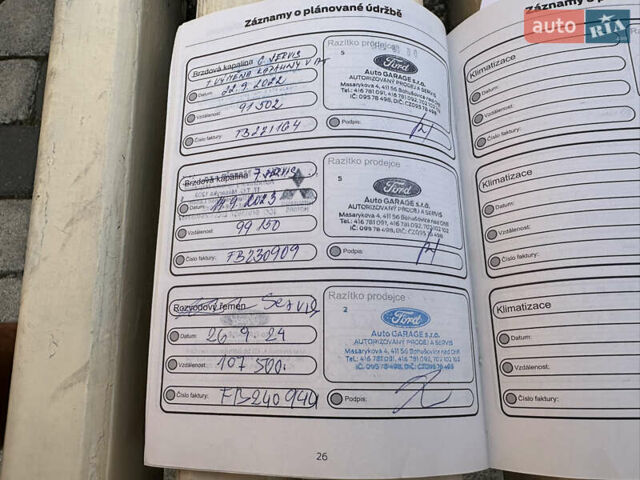 Záznamy o plánované údržbě
auto RIA
Brzdová kapalina 6 SERVIS
VÝMĚNA KAPALINY V AT
Datum: 22.9.2022
Vzdálenost: 91502
Číslo faktury: FB221164
Razítko prodejce
5
Ford
Auto GARAGE s.r.o.
AUTORIZOVANÝ PRODEJ A SERVIS
Masarykova 4, 411 56 Bohušovice nad Ohří
Tel.: 416 781 091, 416 781 092, 703 102 102
IČ: 095 78 498, DIČ: CZ095 78 498
Podpis:
Brzdová kapalina 7
Datum: 9.2023
Vzdálenost: 99150
Číslo faktury: FB230909
Razítko prodejce
5
Ford
Auto GARAGE s.r.o.
AUTORIZOVANÝ PRODEJ A SERVIS
Masarykova 4, 411 56 Bohušovice nad Ohří
Tel.: 416 781 091, 416 781 092, 703 102 102
IČ: 095 78 498, DIČ: CZ095 78 498
Podpis:
Rozvodový řemen Servis
Datum: 26.9.24
Vzdálenost: 107500
Číslo faktury: FB240944
Razítko prodejce
2
Ford
Auto GARAGE s.r.o.
AUTORIZOVANÝ PRODEJ A SERVIS
Masarykova 4, 411 56 Bohušovice nad Ohří
Tel.: 416 781 091, 416 781 092, 703 102 102
IČ: 095 78 498, DIČ: CZ095 78 498
Podpis:
26
Klimatizace
Datum:
Vzdálenost:
Číslo faktury:
Klimatizace
Datum:
Vzdálenost:
Číslo faktury:
Klimatizace
Datum:
Vzdálenost:
Číslo faktury: